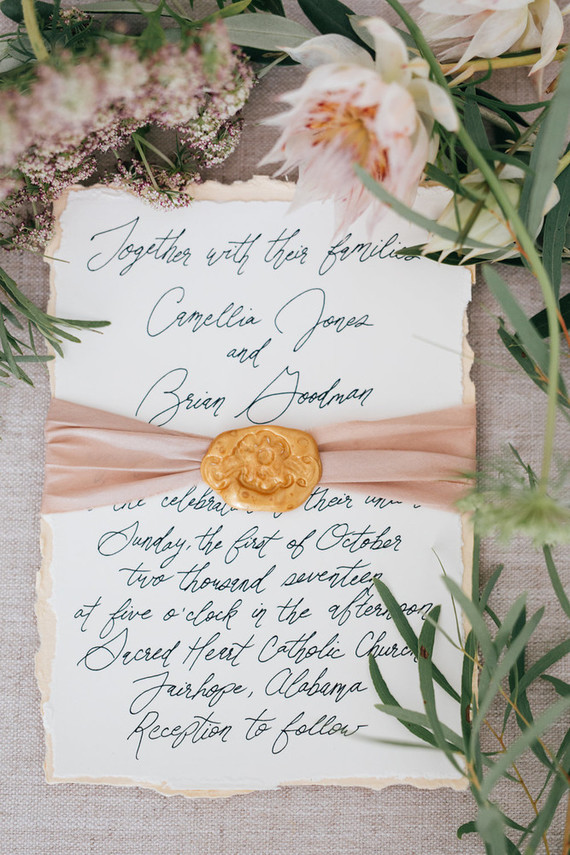 Together with their families
Camellia Jones
and
Brian Goodman
the celebration their
Sunday, the first of October
two thousand seventeen
at five o'clock in the afternoon
Sacred Heart Catholic Church
Fairhope, Alabama
Reception to follow